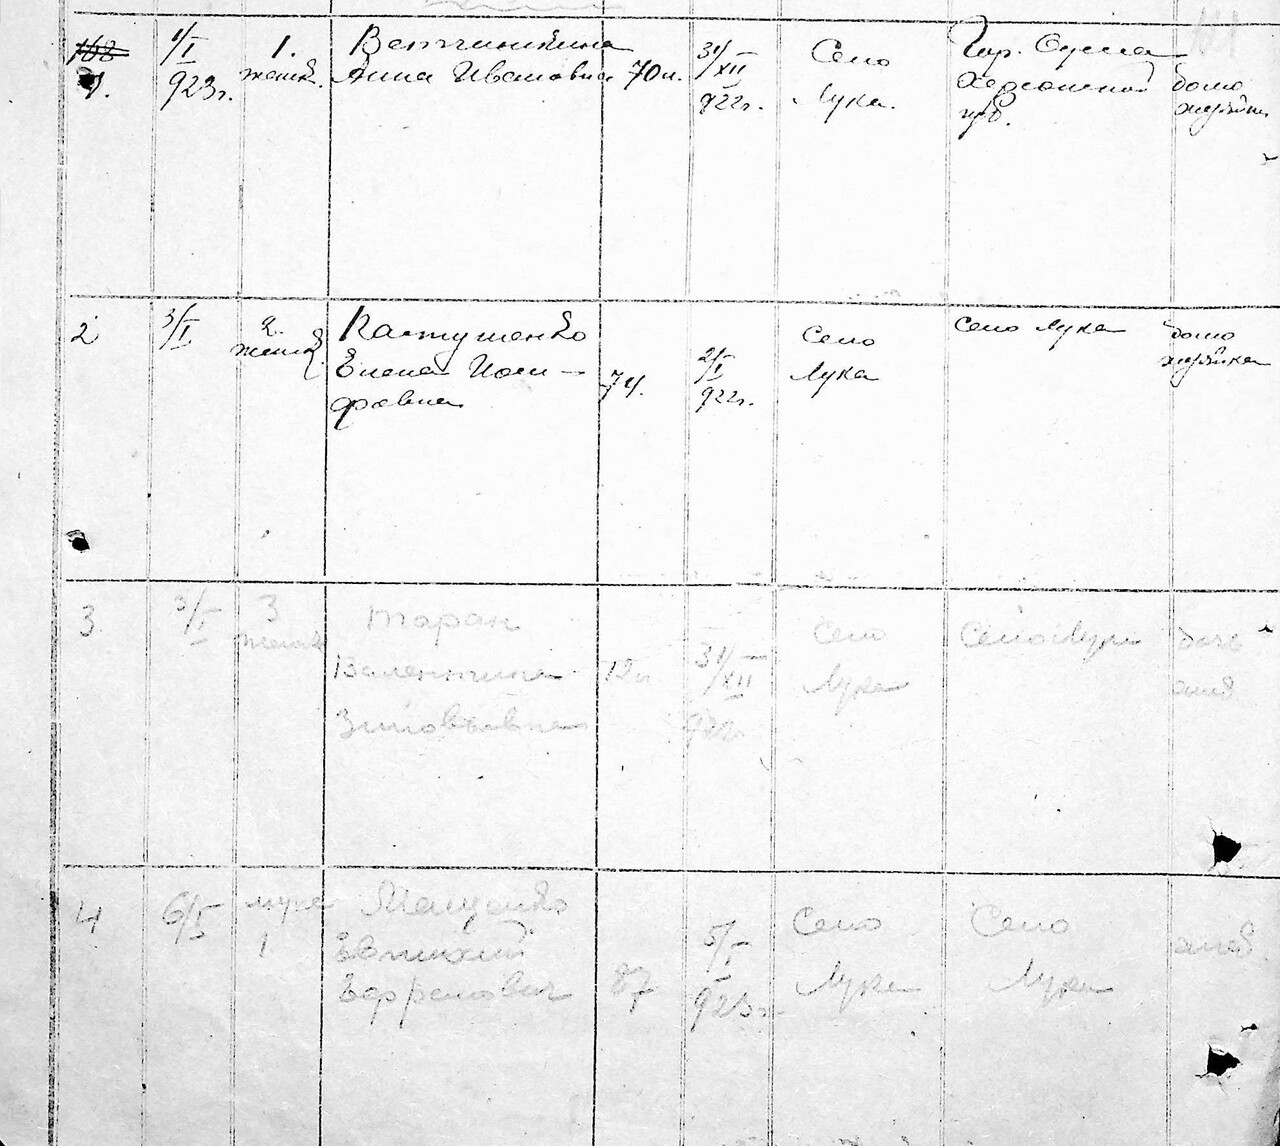 168
1.
1/I
923г.
1.
женск.
Ветчинкина
Анна Ивановна
70 л.
31/XII
922г.
Село
Лука.
Гор. Одесса
Херсонской
губ.
домо
хозяйка
2
3/I
2.
женск.
Елена Иоси-
фовна
74.
2/I
922г.
Село
Лука
Село Лука
домо
хозяйка
3
3/I
3
женск
Таран
Валентина
Зиновьевна
12л
31/XII
922г
Село
Лука
Село Лука
дочь
4
6/I
муж
1
Евтихий
Ефремович
87
5/I
923г.
Село
Лука
Село
Лука